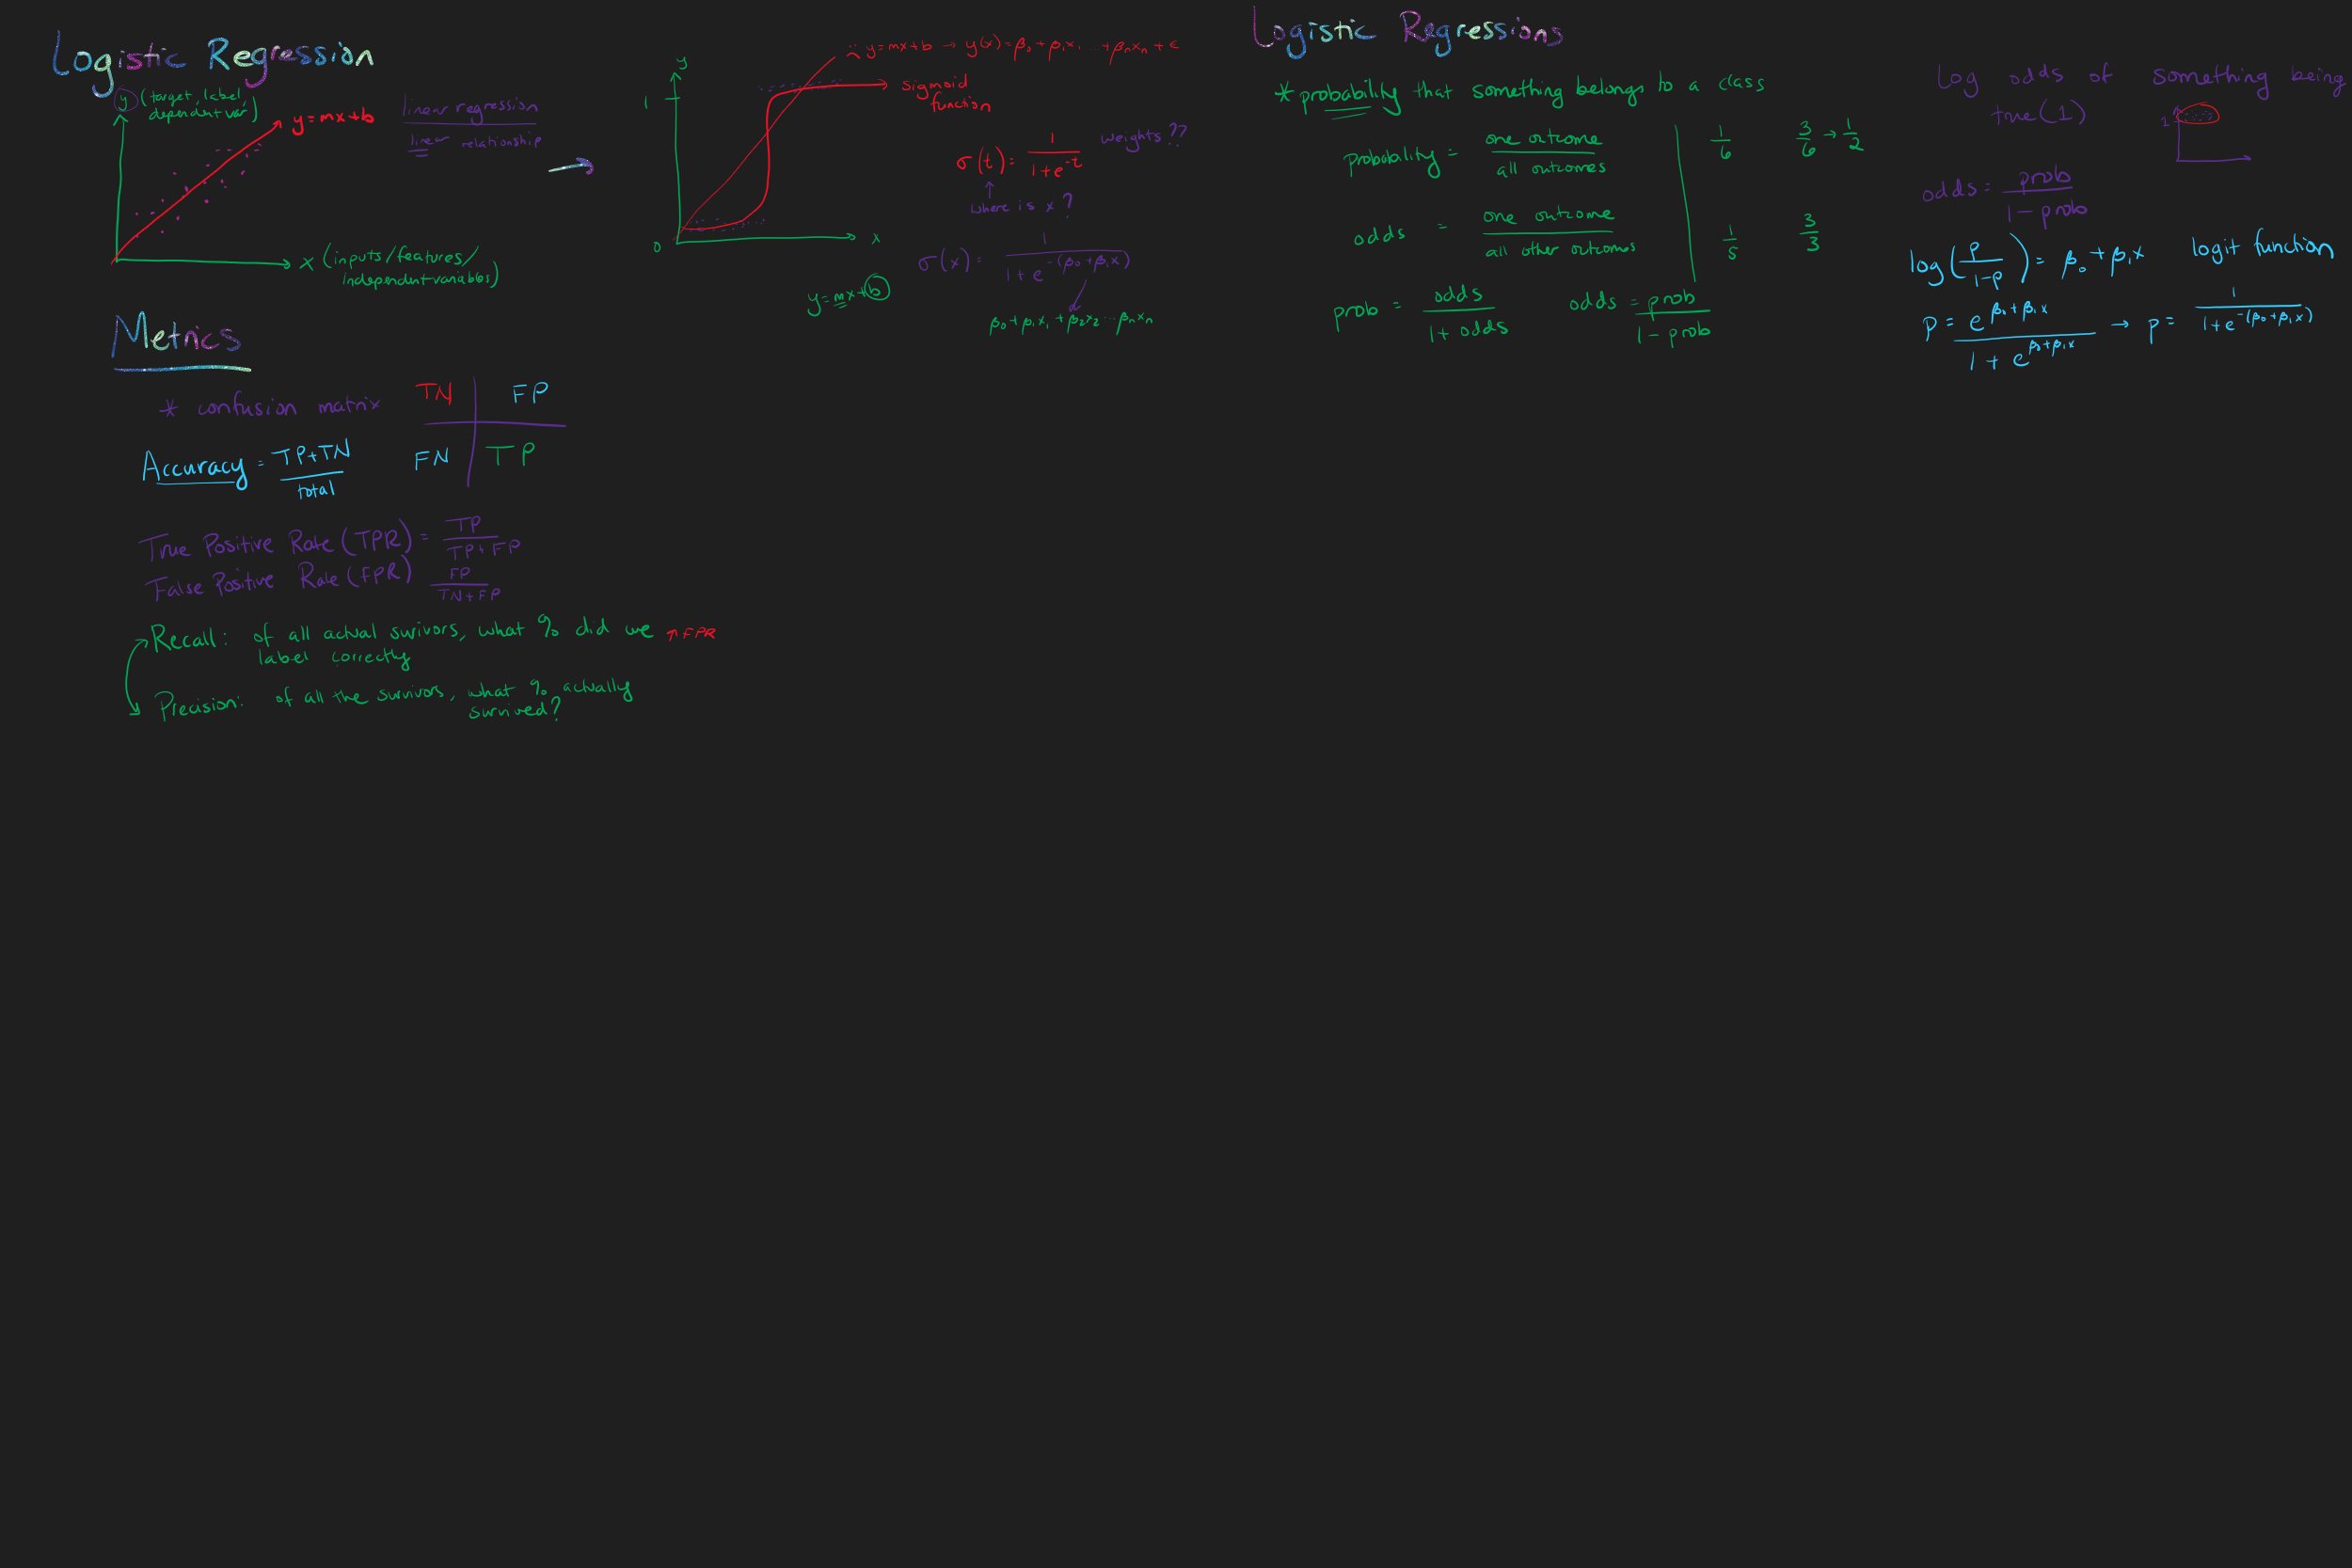 Logistic Regression
y (target, label,
dependent var)
y = mx + b
linear regression
linear relationship
x (inputs/features/
independent variables)
y
1
0
x
y = mx + b → y(x) = β₀ + β₁x₁ ... + βₙxₙ + ε
sigmoid
function
σ(t) = 1 / (1 + e^-t)
weights??
where is x?
σ(x) = 1 / (1 + e^-(β₀ + β₁x))
y = mx + b
β₀ + β₁x₁ + β₂x₂ ... βₙxₙ
Metrics
* confusion matrix
TN FP
FN TP
Accuracy = TP + TN / total
True Positive Rate (TPR) = TP / TP + FP
False Positive Rate (FPR) FP / TN + FP
Recall: of all actual surivors, what % did we ↑ FPR
label correctly
Precision: of all the survivors, what % actually
survived?
Logistic Regressions
* probability that something belongs to a class
probability = one outcome / all outcomes
1/6 3/6 → 1/2
odds = one outcome / all other outcomes
1/5 3/3
prob = odds / 1 + odds
odds = prob / 1 - prob
Log odds of something being
true (1)
1
odds = prob / 1 - prob
log(p / 1-p) = β₀ + β₁x logit function
p = e^(β₀ + β₁x) / 1 + e^(β₀ + β₁x) → p = 1 / 1 + e^-(β₀ + β₁x)